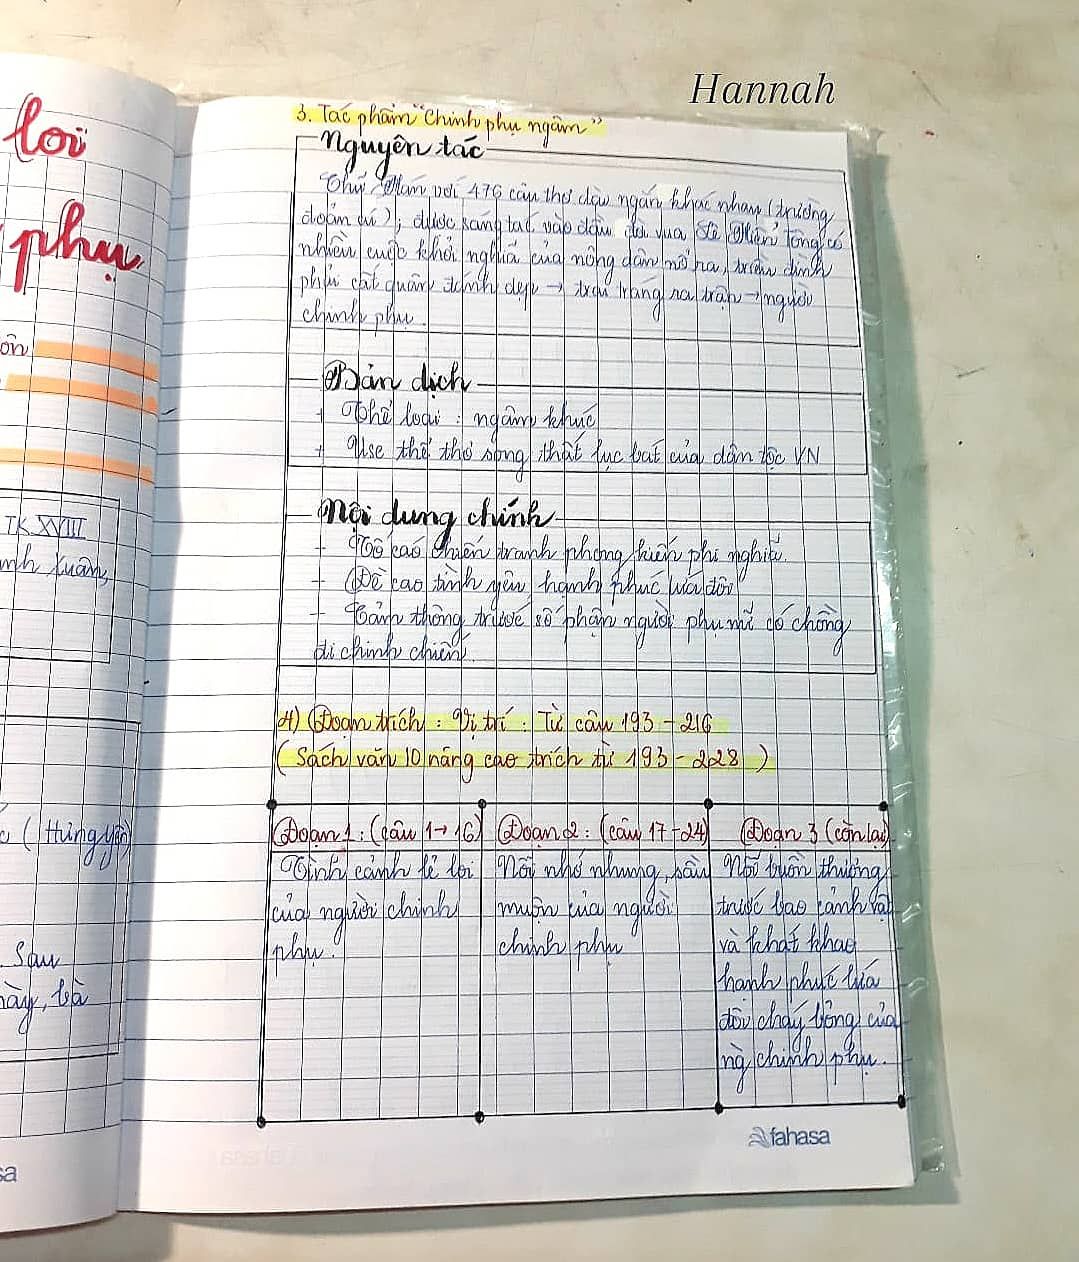 Hannah
lơi
phụ
ôn
TK XVIII
inh Xuân,
( Hưng yên)
Sau
này, bà
sa
3. Tác phẩm "Chinh phụ ngâm"
Nguyên tác
Chữ Hán với 476 câu thơ dài ngắn khác nhau (trường
đoản cú); được sáng tác vào đầu đời vua Lê Hiển Tông có
nhiều cuộc khởi nghĩa của nông dân nổ ra, triều đình
phải cất quân đánh dẹp → trai tráng ra trận → người
chinh phụ.
Bản dịch
+ Thể loại : ngâm khúc
+ Use thể thơ song thất lục bát của dân tộc VN
Nội dung chính
+ Tố cáo chiến tranh phong kiến phi nghĩa.
+ Đề cao tình yêu, hạnh phúc lứa đôi
+ Cảm thông trước số phận người phụ nữ có chồng
đi chinh chiến.
4) Đoạn trích : Vị trí : Từ câu 193 - 216
( Sách văn 10 nâng cao trích từ 193 - 228 )
Đoạn 1 : (câu 1 → 16)
Tình cảnh lẻ loi
của người chinh
phụ.
Đoạn 2 : (câu 17 - 24)
Nỗi nhớ nhung, sầu
muộn của người
chinh phụ
Đoạn 3 (còn lại)
Nỗi buồn thương
trước bao cảnh vật
và khát khao
hạnh phúc lứa
đôi cháy bỏng của
ng chinh phụ.
fahasa